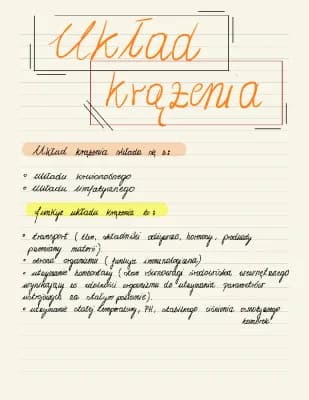 Układ
krążenia
Układ krążenia składa się z:
• układu krwionośnego
• układu limfatycznego
funkcje układu krążenia to:
• transport (tlen, składniki odżywcze, hormony, produkty
przemiany materii)
• obrona organizmu (funkcja immunologiczna)
• utrzymanie homeostazy (stan równowagi środowiska wewnętrznego
wynikający ze zdolności organizmu do utrzymania parametrów
ustrojowych na stałym poziomie).
• utrzymanie stałej temperatury, PH, stabilnego ciśnienia osmotycznego
komórek